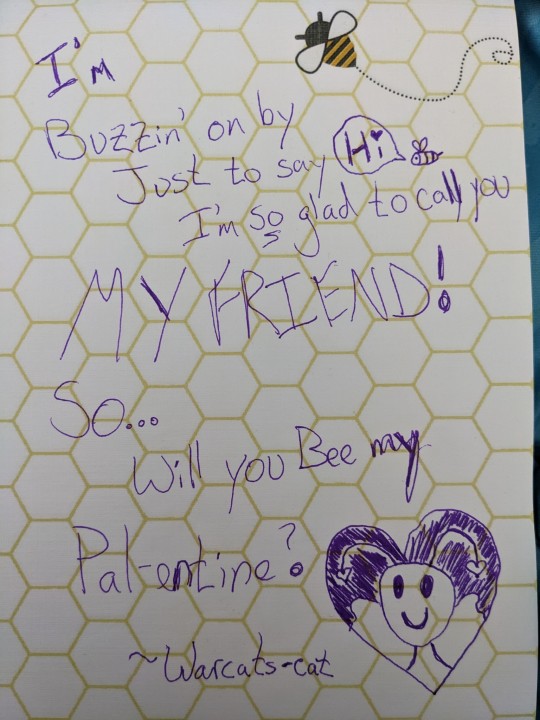 I'm
Buzzin' on by
Just to say Hi
I'm so glad to call you
MY FRIEND!
So...
Will you Bee my
Pal-entine?
~Warcats-cat